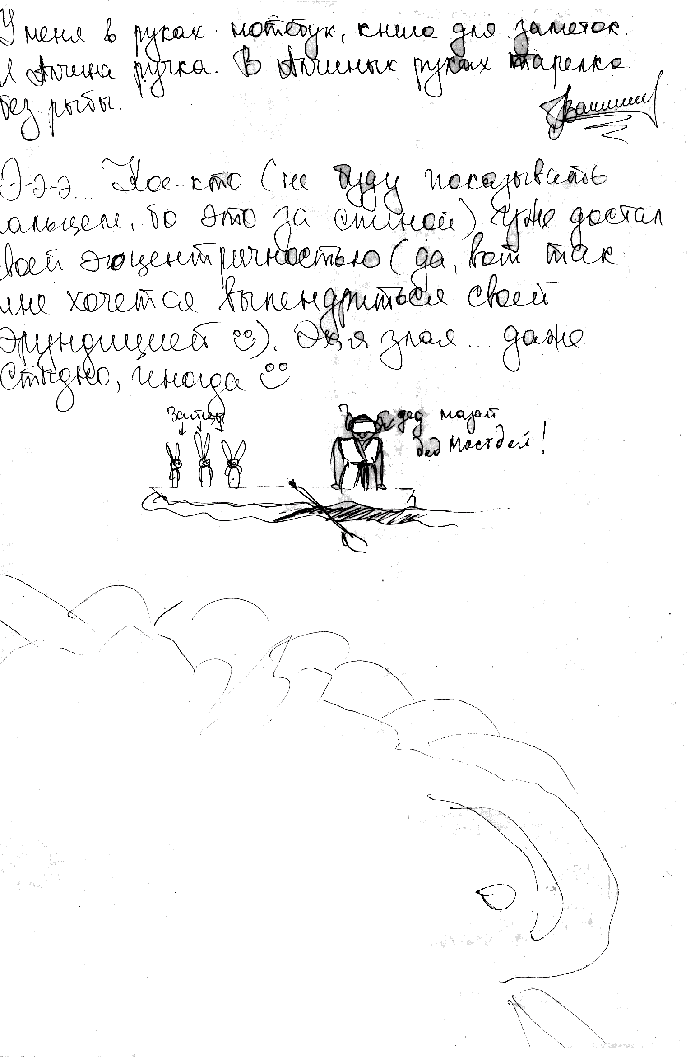 У меня в руках нотебук, книга для заметок.
И Анчина ручка. В Анчиных руках тарелка
без рыбы.
Э-э-э... Кое-кто (не буду показывать
альцем, бо это за спиной) уже достал
воей эгоцентричностью (да, вот так
мне хочется выпендриться своей
эрундицией ☺). Эх я злая... даже
стыдно, иногда ☺
Зайцы
дед мазай
дед мастдай!